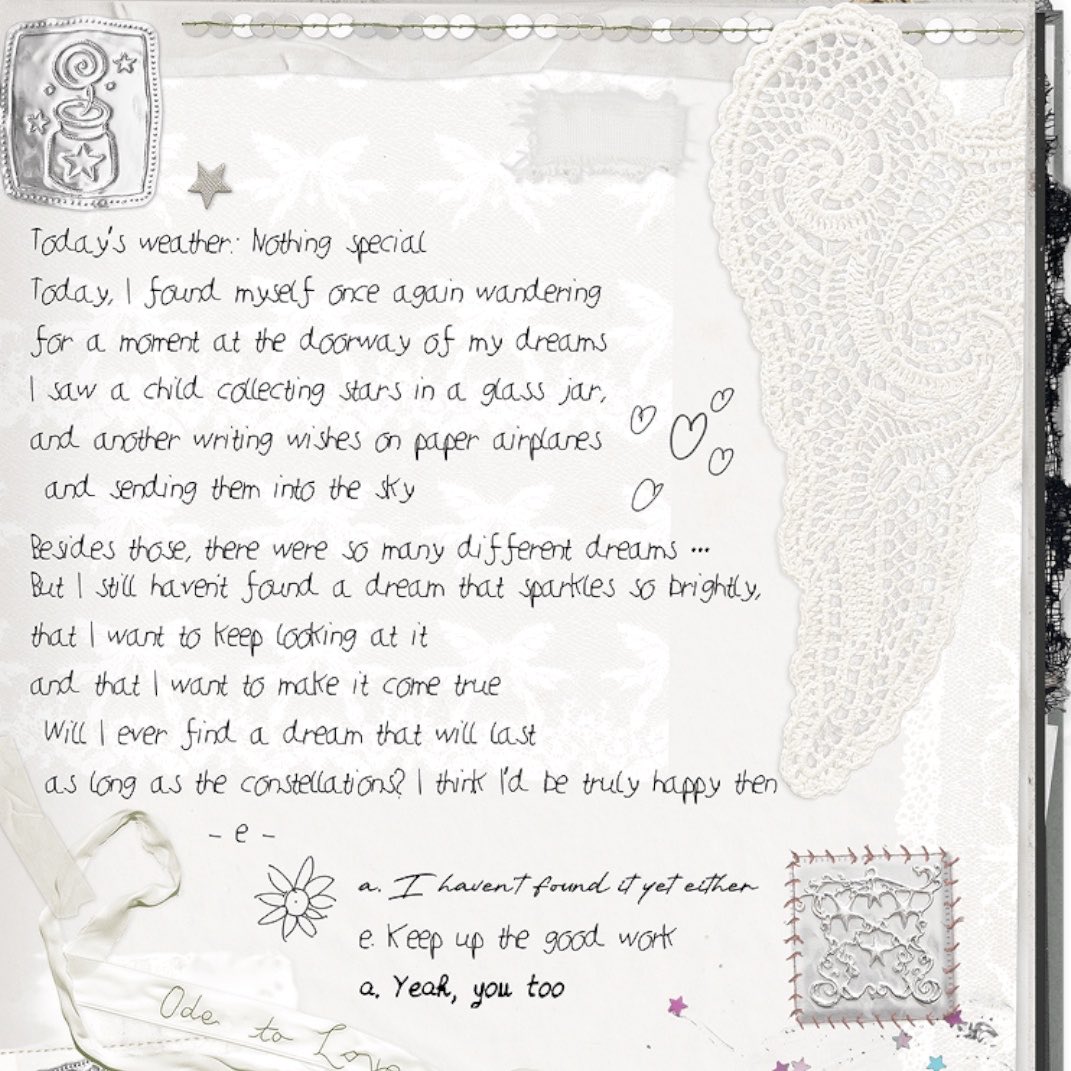 Today's weather: Nothing special
Today, I found myself once again wandering
for a moment at the doorway of my dreams
I saw a child collecting stars in a glass jar,
and another writing wishes on paper airplanes
and sending them into the sky
Besides those, there were so many different dreams ...
But I still haven't found a dream that sparkles so brightly,
that I want to keep looking at it
and that I want to make it come true
Will I ever find a dream that will last
as long as the constellations? I think I'd be truly happy then
- e -
a. I haven't found it yet either
e. Keep up the good work
a. Yeah, you too
Ode to Love